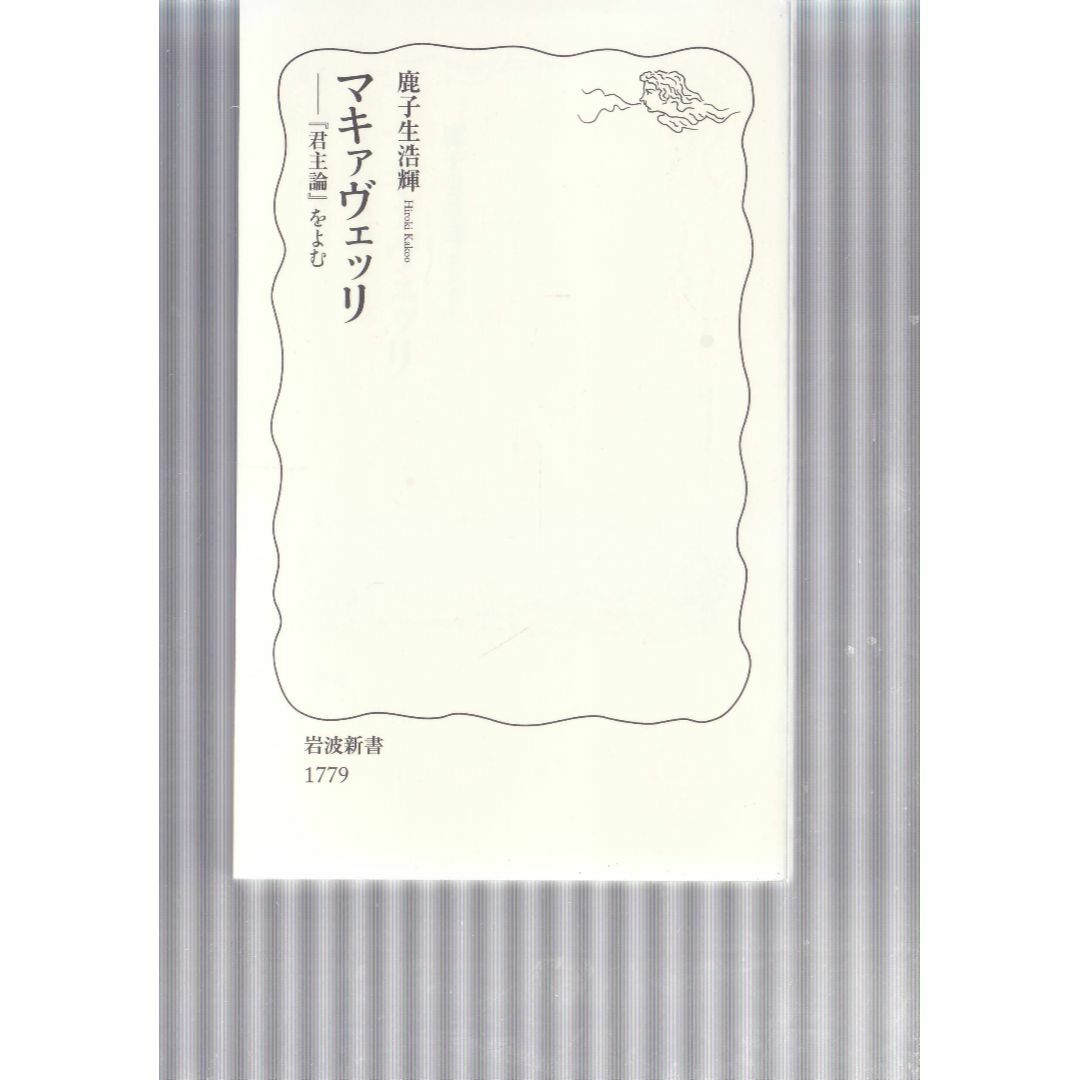 鹿子生浩輝 Hiroki Kakoo
マキァヴェッリ
――『君主論』をよむ
岩波新書
1779